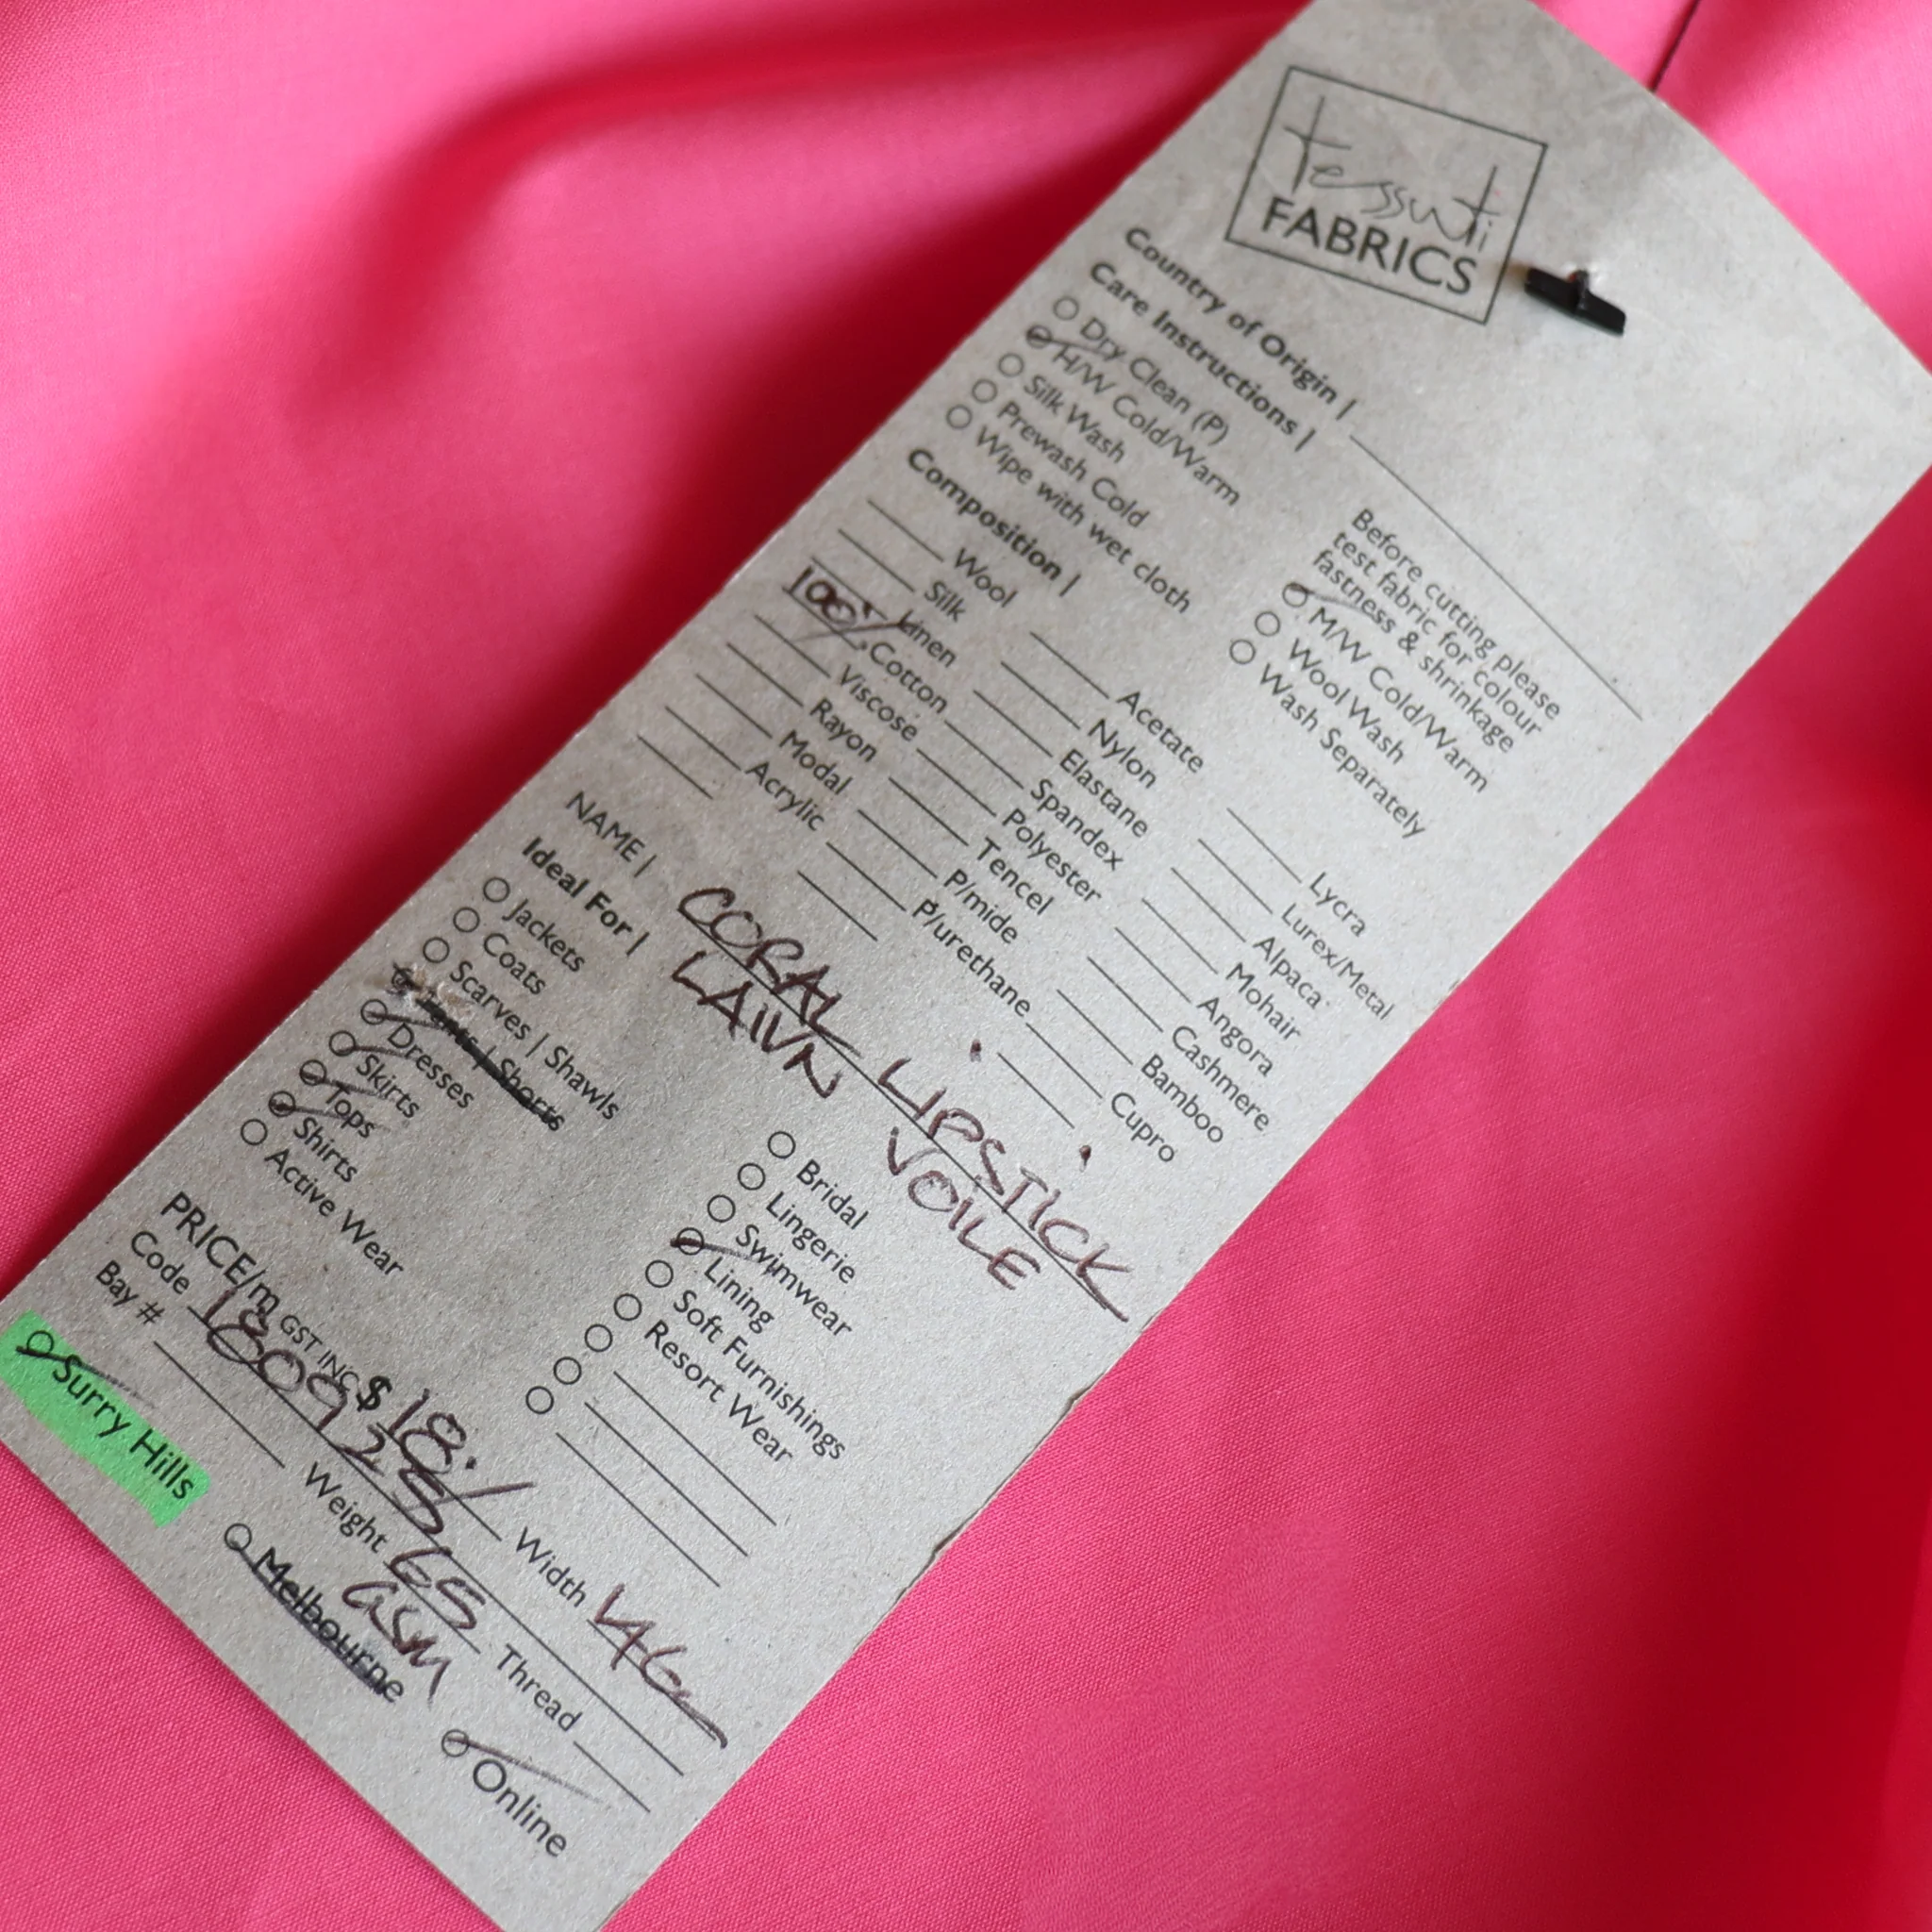 tessuti
FABRICS
Country of Origin |
Care Instructions |
Dry Clean (P)
H/W Cold/Warm
Silk Wash
Prewash Cold
Wipe with wet cloth
Before cutting please
test fabric for colour
fastness & shrinkage
M/W Cold/Warm
Wool Wash
Wash Separately
Composition |
Wool
Silk
Linen
100% Cotton
Viscose
Rayon
Modal
Acrylic
Acetate
Nylon
Elastane
Spandex
Polyester
Tencel
P/mide
P/urethane
Lycra
Lurex/Metal
Alpaca
Mohair
Angora
Cashmere
Bamboo
Cupro
NAME | CORAL LIPSTICK
LAWN VOILE
Ideal For |
Jackets
Coats
Scarves | Shawls
Shorts
Dresses
Skirts
Tops
Shirts
Active Wear
Bridal
Lingerie
Swimwear
Lining
Soft Furnishings
Resort Wear
PRICE/m GST INC $ 18./ Width 146
Code 180925
Bay # Weight 65 GSM Thread
Surry Hills Melbourne Online